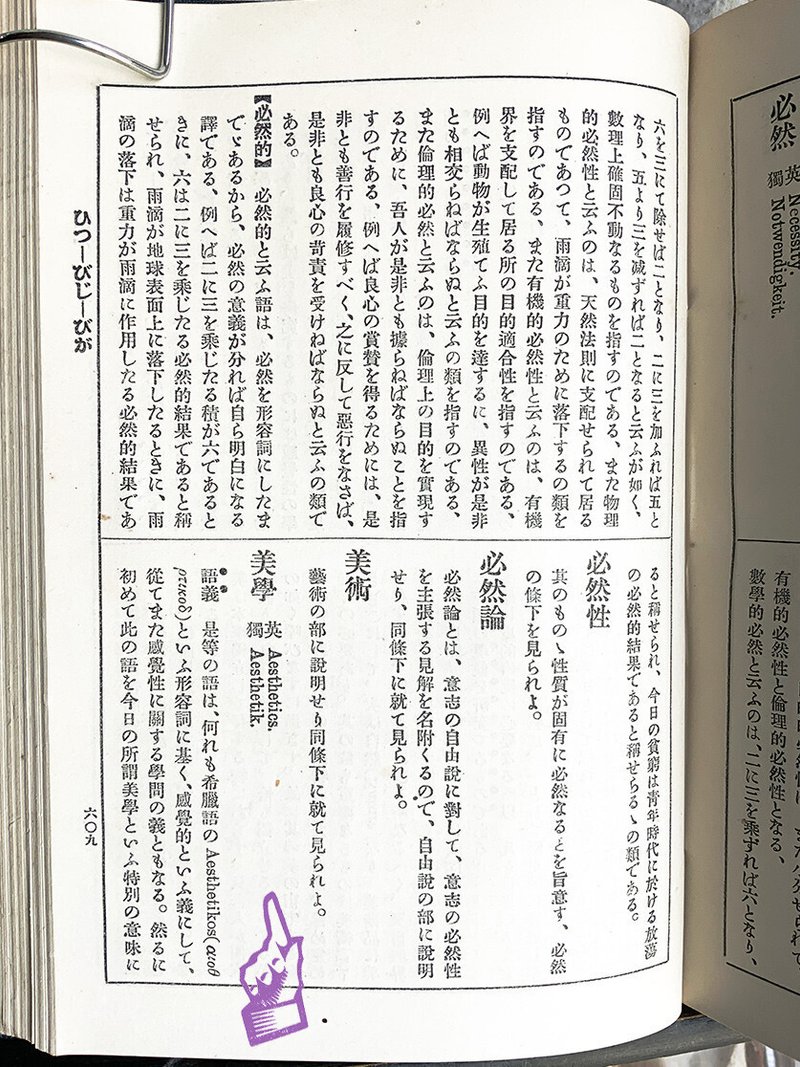 必然 英 Necessity.
獨 Notwendigkeit.
有機的必然性と倫理的必然性となる、
數學的必然と云ふのは、二に三を乘ずれば六となり、
六を三にて除せば二となり、二に三を加ふれば五と
なり、五より三を減ずれば二となると云ふが如く、
數理上確固不動なるものを指すのである、また物理
的必然性と云ふのは、天然法則に支配せられて居る
ものであつて、雨滴が重力のために落下するの類を
指すのである、また有機的必然性と云ふのは、有機
界を支配して居る所の目的適合性を指すのである、
例へば動物が生殖てふ目的を達するに、異性が是非
とも相交らねばならぬと云ふの類を指すのである、
また倫理的必然と云ふのは、倫理上の目的を實現す
るために、吾人が是非とも據らねばならぬことを指
すのである、例へば良心の賞賛を得るためには、是
非とも善行を履修すべく、之に反して惡行をなさば、
是非とも良心の苛責を受けねばならぬと云ふの類で
ある。
【必然的】 必然的と云ふ語は、必然を形容詞にしたま
でゞあるから、必然の意義が分れば自ら明白になる
譯である、例へば二に三を乘じたる積が六であると
きに、六は二に三を乘じたる必然的結果であると稱
せられ、雨滴が地球表面上に落下したるときに、雨
滴の落下は重力が雨滴に作用したる必然的結果であ
ると稱せられ、今日の貧窮は靑年時代に於ける放蕩
の必然的結果であると稱せらるゝの類である。
必然性
其のものゝ性質が固有に必然なるとを旨意す、必然
の條下を見られよ。
必然論
必然論とは、意志の自由說に對して、意志の必然性
を主張する見解を名附くるので、自由說の部に說明
せり、同條下に就て見られよ。
美術
藝術の部に說明せり同條下に就て見られよ。
美學 英 Aesthetics.
獨 Aesthetik.
語義 是等の語は、何れも希臘語の Aesthetikos(αισθ
ητικοδ)といふ形容詞に基く、感覺的といふ義にして、
從てまた感覺性に關する學問の義ともなる。然るに
初めて此の語を今日の所謂美學といふ特別の意味に
ひつ―びじ―びが
六〇九